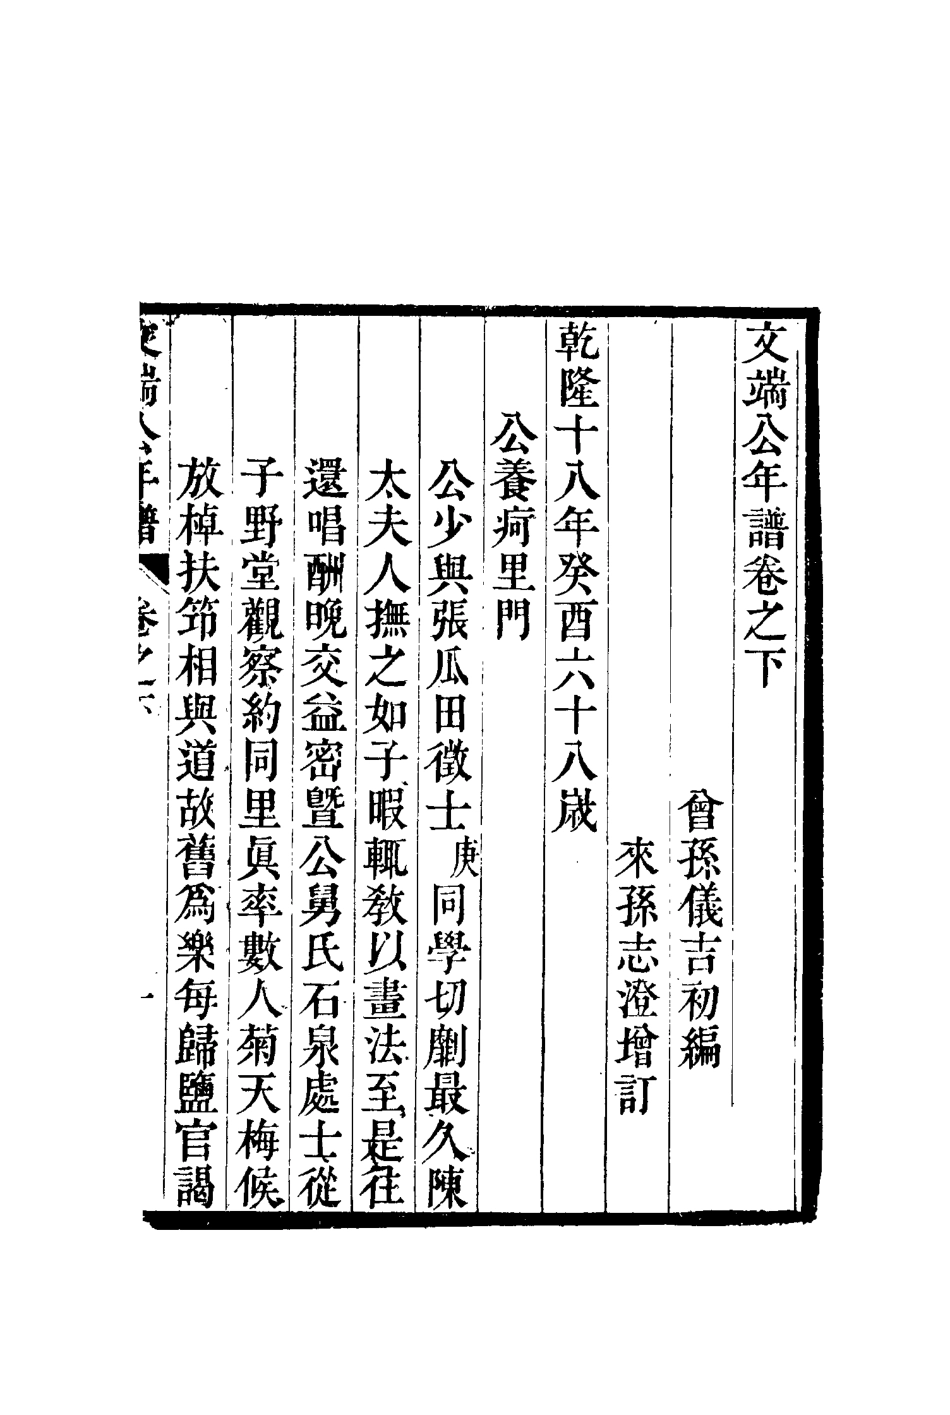 文端公年譜卷之下
曾孫儀吉初編
來孫志澄增訂
乾隆十八年癸酉六十八歲
公養疴里門
公少與張瓜田徵士庚同學切劘最久陳
太夫人撫之如子暇輒教以畫法至是往
還唱酬晚交益密曁公舅氏石泉處士從
子野堂觀察約同里眞率數人菊天梅候
放棹扶笻相與道故舊爲樂每歸鹽官謁
文端公年譜 卷之下 一